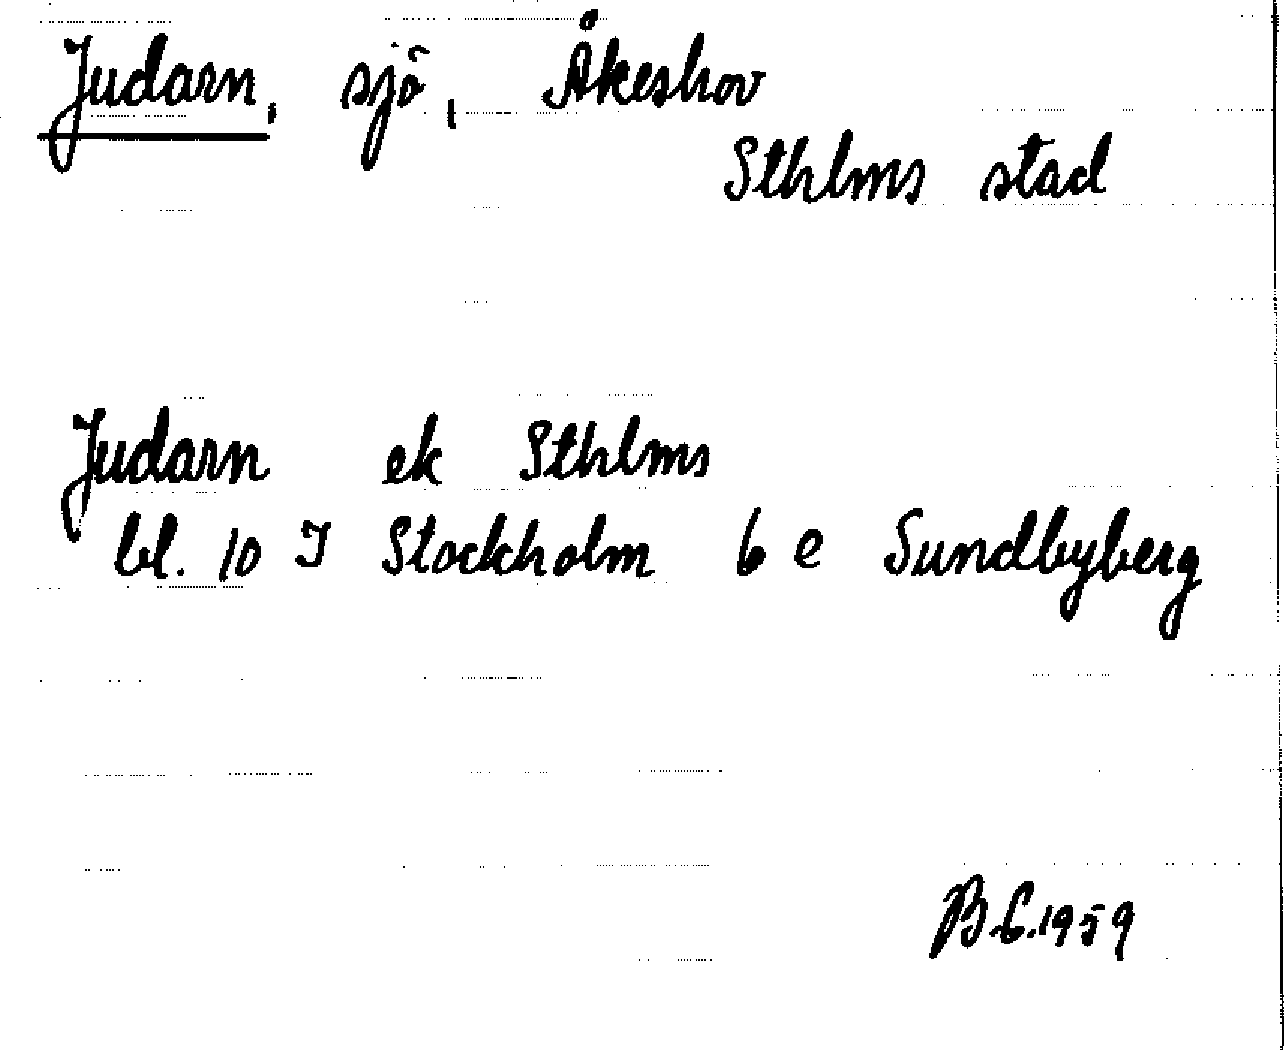 Judarn, sjö, Åkeshov
Sthlms stad
Judarn ek Sthlms
bl. 10 I Stockholm 6 e Sundbyberg
B.C. 1959